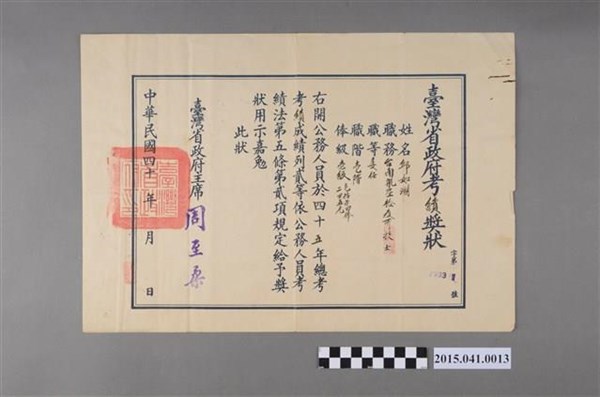 臺灣省政府考績獎狀
字第 號
姓名 邱如
職務 台南
職等 委任
職階 壱階
俸級 壱級
右開公務人員於四十五年總考
考績成績列貳等依公務人員考
績法第五條第貳項規定給予獎
狀用示嘉勉
此狀
臺灣省政府主席 周至柔
中華民國四十 年 月 日
2015.041.0013